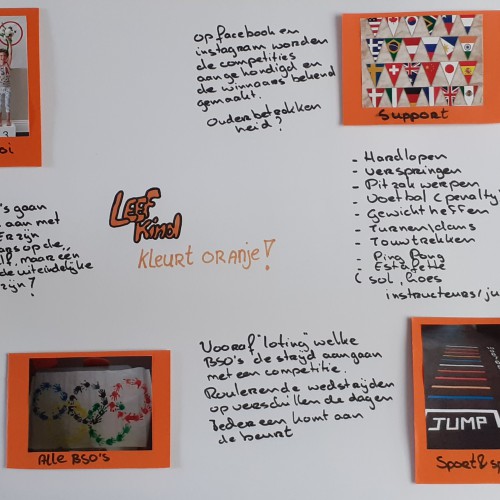 op facebook en
instagram worden
de competities
aangehondigd en
de winnaars bekend
gemaakt.
Ouderbetrokken
heid?
3
oi
Support
- Hardlopen
- verspringen
- Pitzak werpen
- Voetbal (penalty
- Gewicht heffen
- Turnen/dans
- Touwtrekken
- Ping Pong
- Estafette
( sol, Goes
instructeurs/ju
's gaan
aan met
Er zijn
op de
maar één
de uiteindelijke
zijn?
LEEF
Kind
Kleurt oranje!
Vooraf "loting" welke
BSO's de strijd aangaan
met een competitie.
Roulerende wedstrijden
op verschillende dagen
Iedereen komt aan
de beurt
Alle BSO's
JUMP
Sport & sp